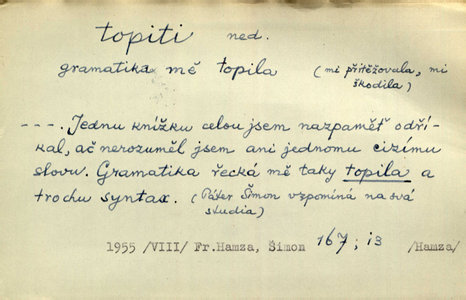 topiti ned.
gramatika mě topila (mi přitěžovala, mi
škodila)
----. Jednu knížku celou jsem nazpaměť odří-
kal, ač nerozuměl jsem ani jednomu cizímu
slovu. Gramatika řecká mě taky topila a
trochu syntax. (Páter Šimon vzpomíná na svá
studia)
1955 /VIII/ Fr.Hamza, Šimon 167; i3 /Hamza/